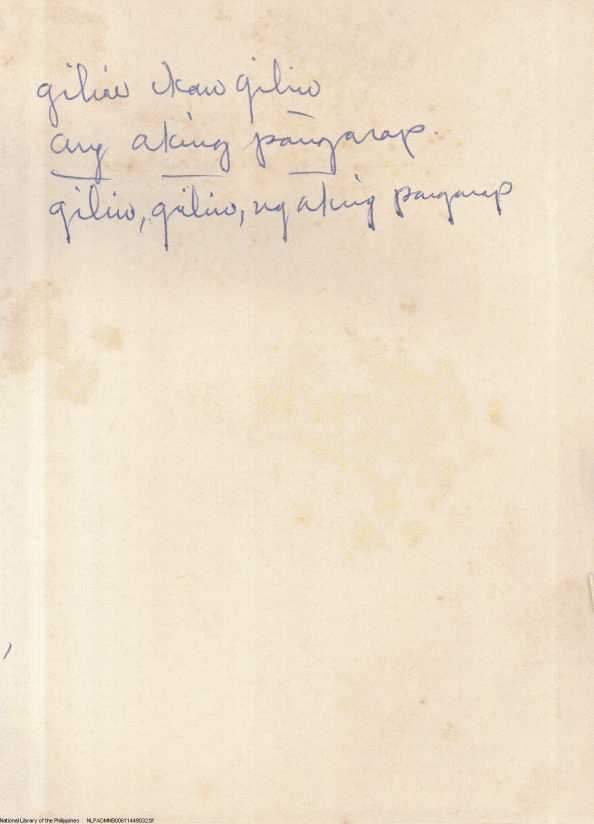 giliw ikaw giliw
ang aking pangarap.
giliw, giliw, ng aking pangarap
National Library of the Philippines